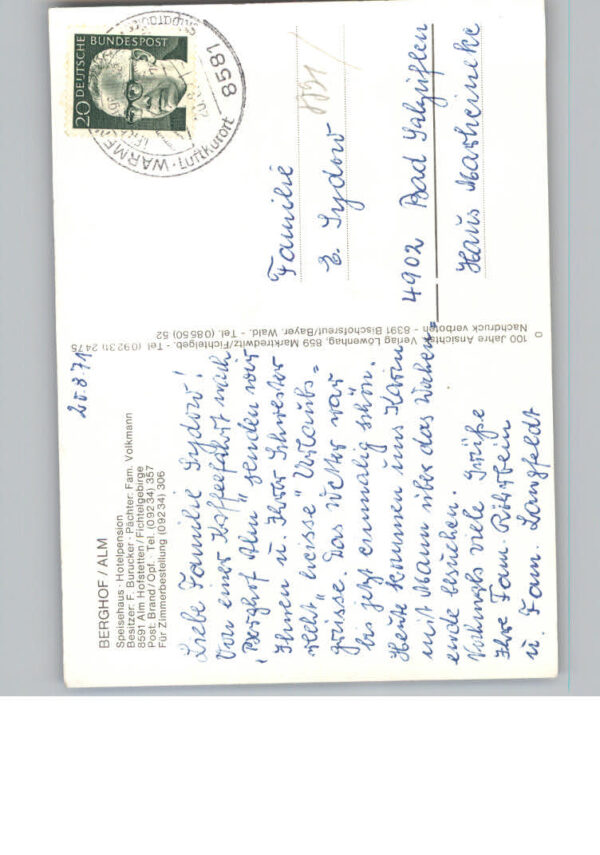 BERGHOF / ALM
Speisehaus · Hotelpension
Besitzer: F. Burucker · Pächter: Fam. Volkmann
8591 Alm Hofstetten / Fichtelgebirge
Post: Brand/Opf. · Tel. (09234) 357
Für Zimmerbestellung (09234) 306
20.8.71
Liebe Familie Sydow!
Von einer Kaffeefahrt nach
"Berghof Alm" senden wir
Ihnen u. Ihrer Schwester
recht "weisse" Urlaubs=
grüsse. Das Wetter war
bis jetzt einmalig schön.
Heute kommen uns Karin
mit Mann über das Wochen=
ende besuchen.
Vielmals viele Grüße
Ihre Fam.
u. Fam. Langfeldt
100 Jahre Ansichtskarten Verlag Löwenhag, 859 Marktredwitz/Fichtelgeb. - Tel. (09231) 2475
Nachdruck verboten - 8391 Bischofsreut/Bayer. Wald. - Tel. (08550) 52
20 DEUTSCHE BUNDESPOST
8581 WARME · Luftkurort
Familie
E. Sydow
4902 Bad Salzuflen
Haus Marheineke